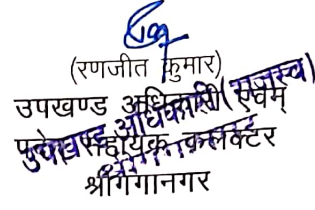 (रणजीत कुमार)
उपखण्ड अधिकारी एवम्
पदेन सहायक कलक्टर
श्रीगंगानगर
उपखण्ड अधिकारी (राजस्व)